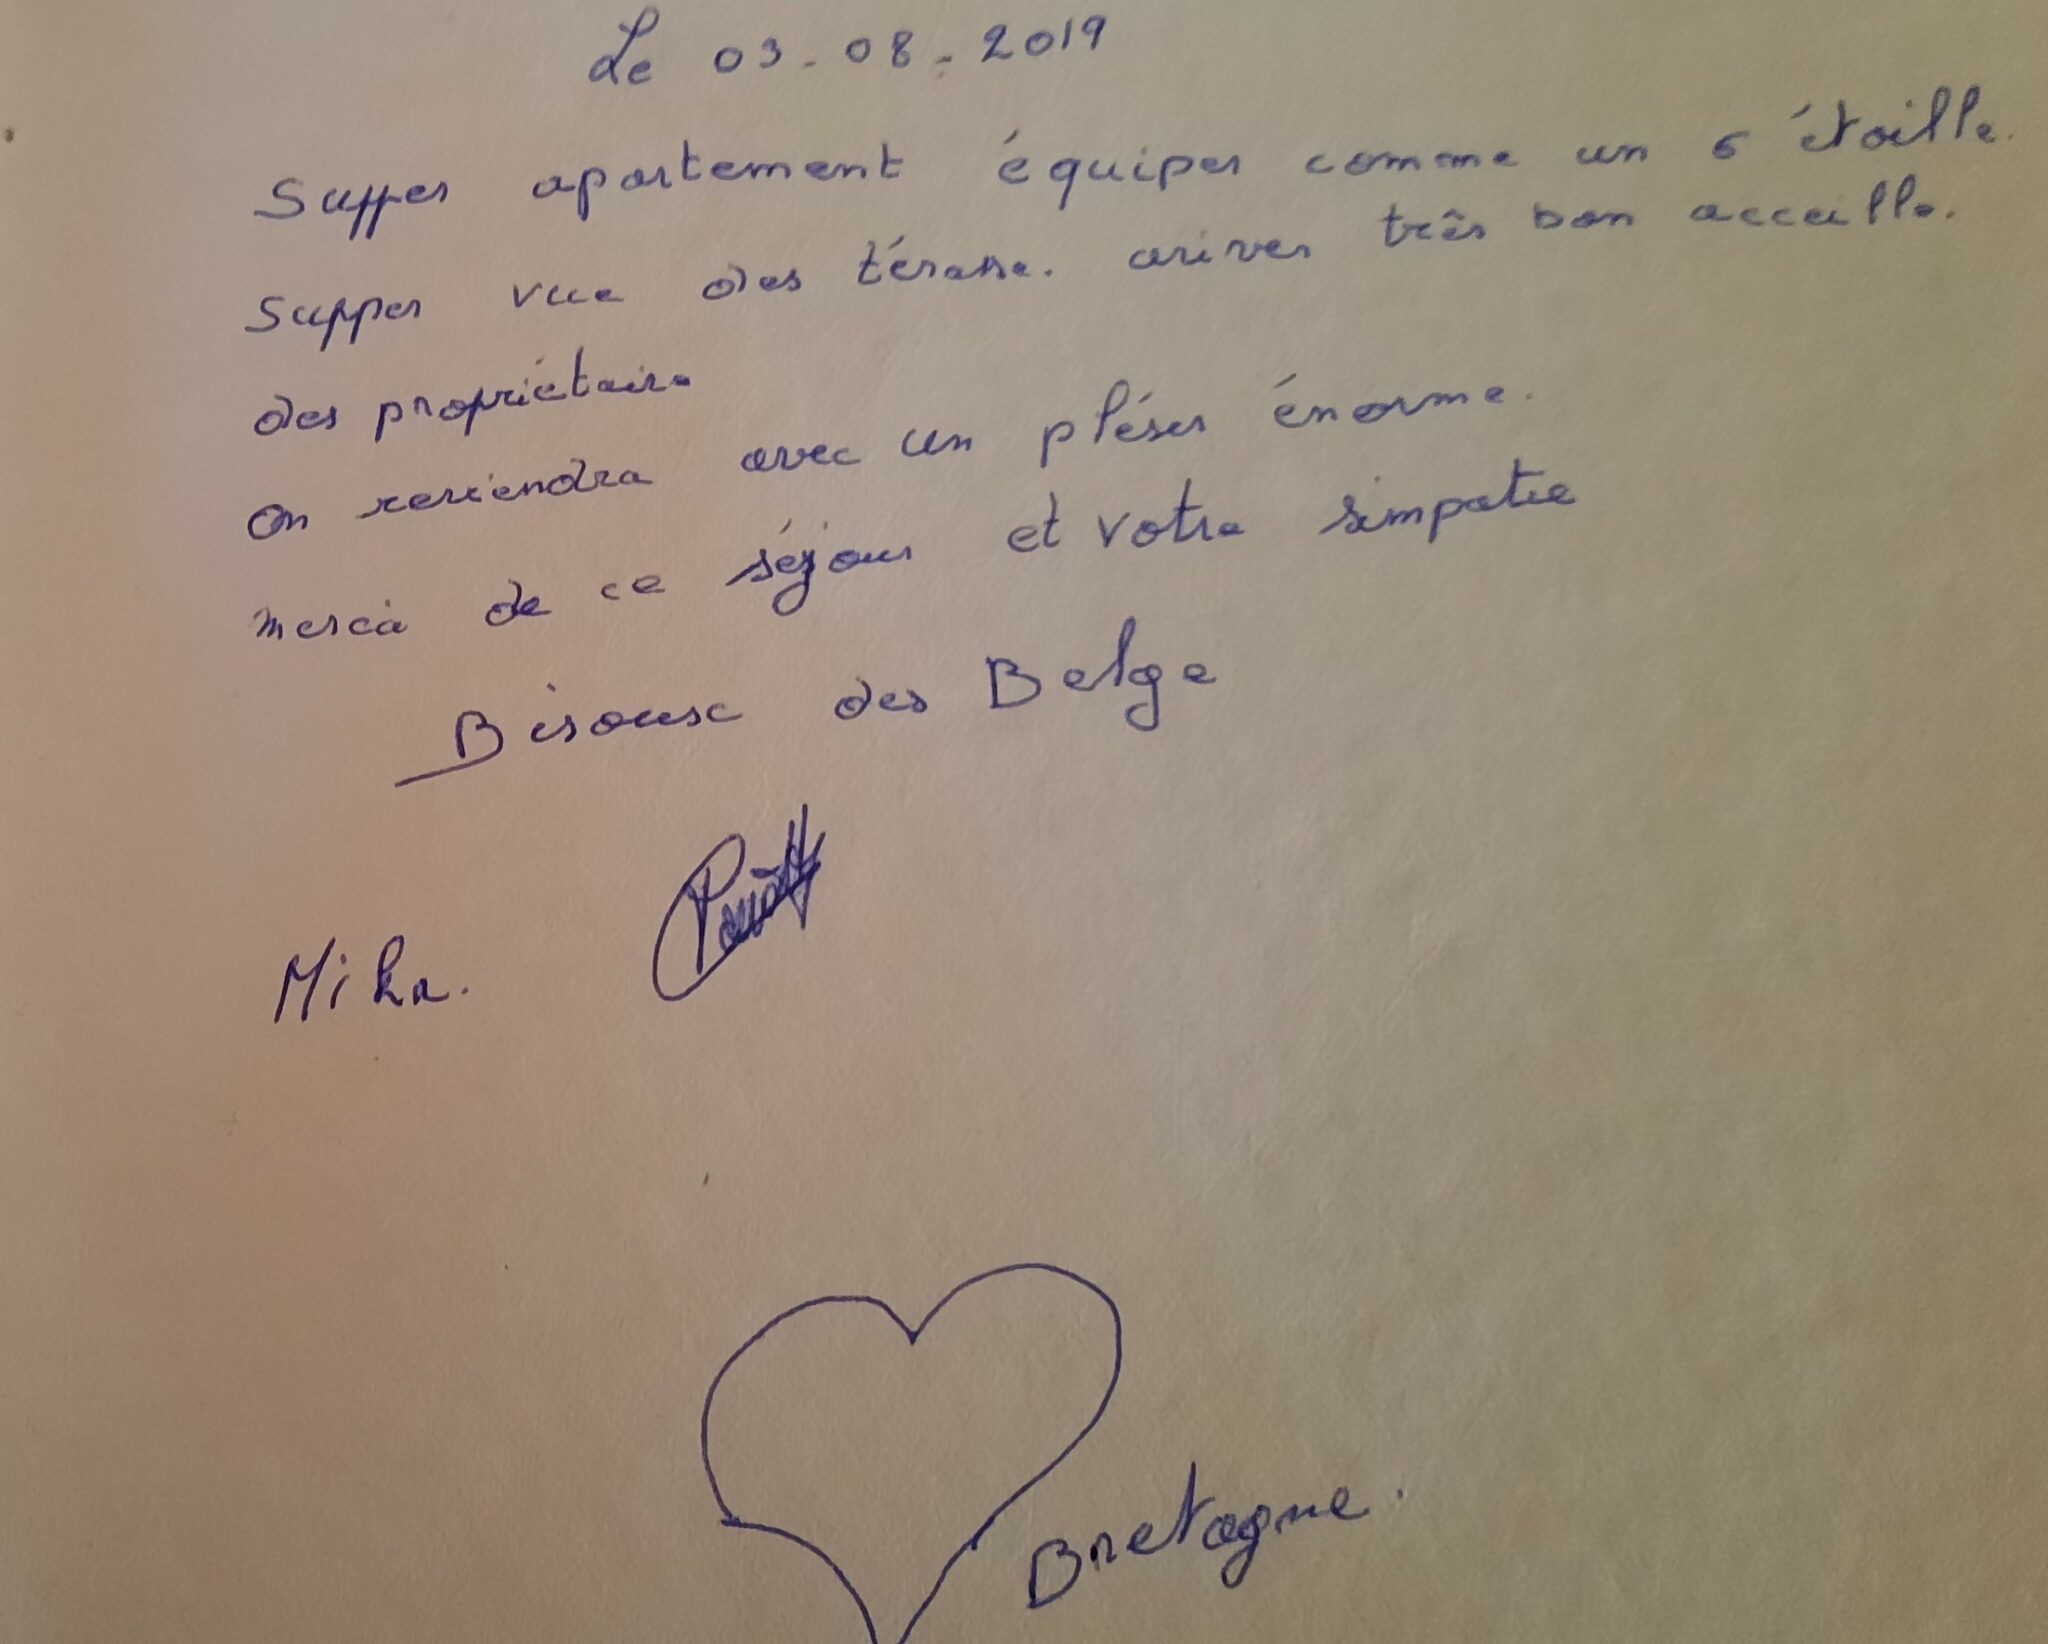 Le 03-08-2019
Supper apartement équiper comme un 6 étoille.
Supper vue des térasse. ariver très bon acceille.
des propriétaire
On reviendra avec un pléser énorme.
Merci de ce séjour et votre simpatie
Bisousc des Belge
Mika.
Bretagne.